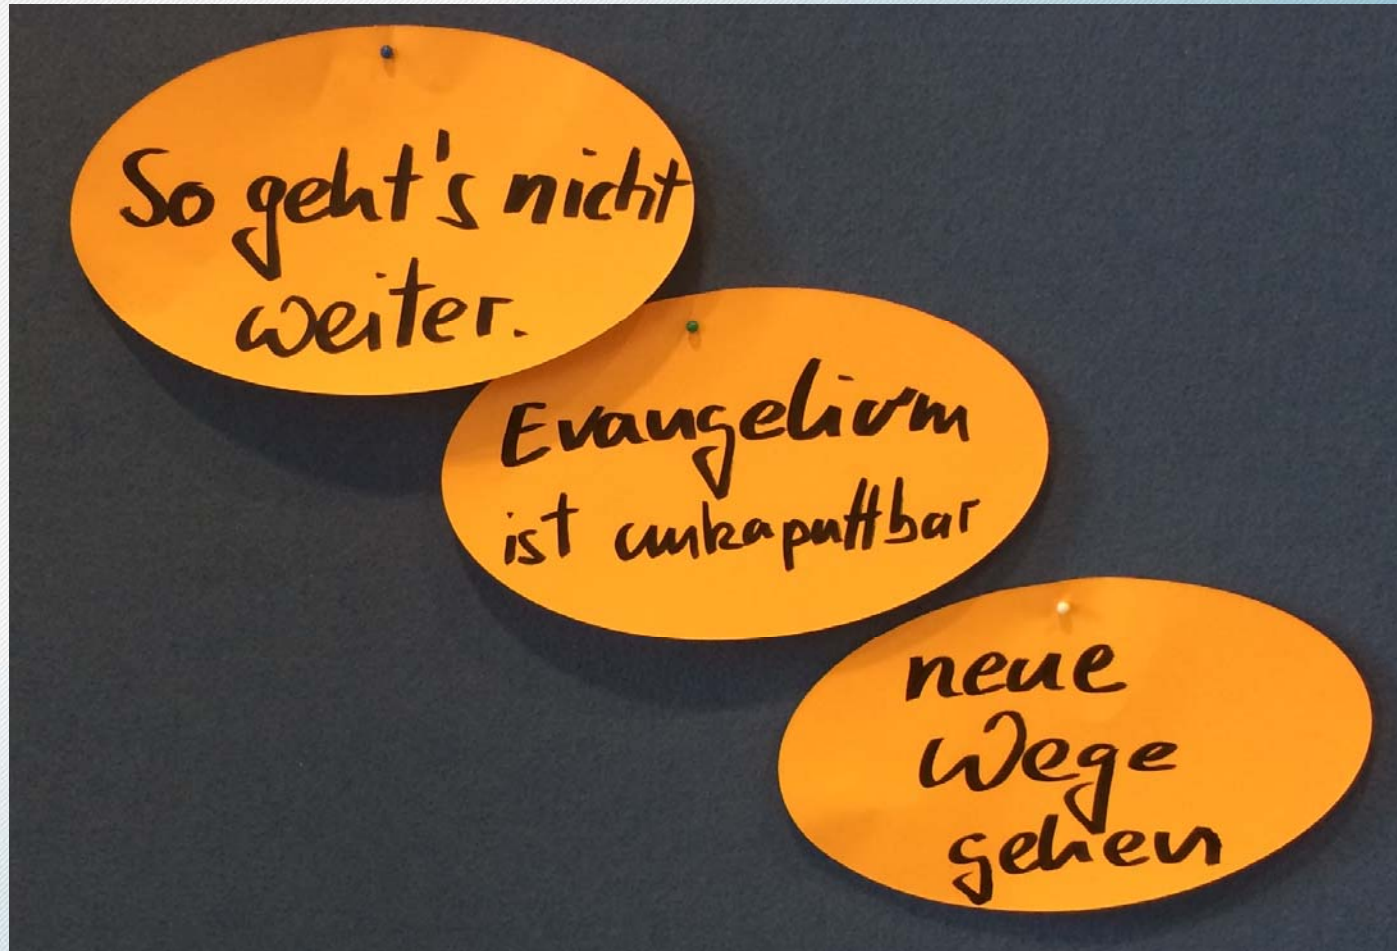 So geht's nicht
weiter.
Evangelium
ist unkaputtbar
neue
Wege
gehen